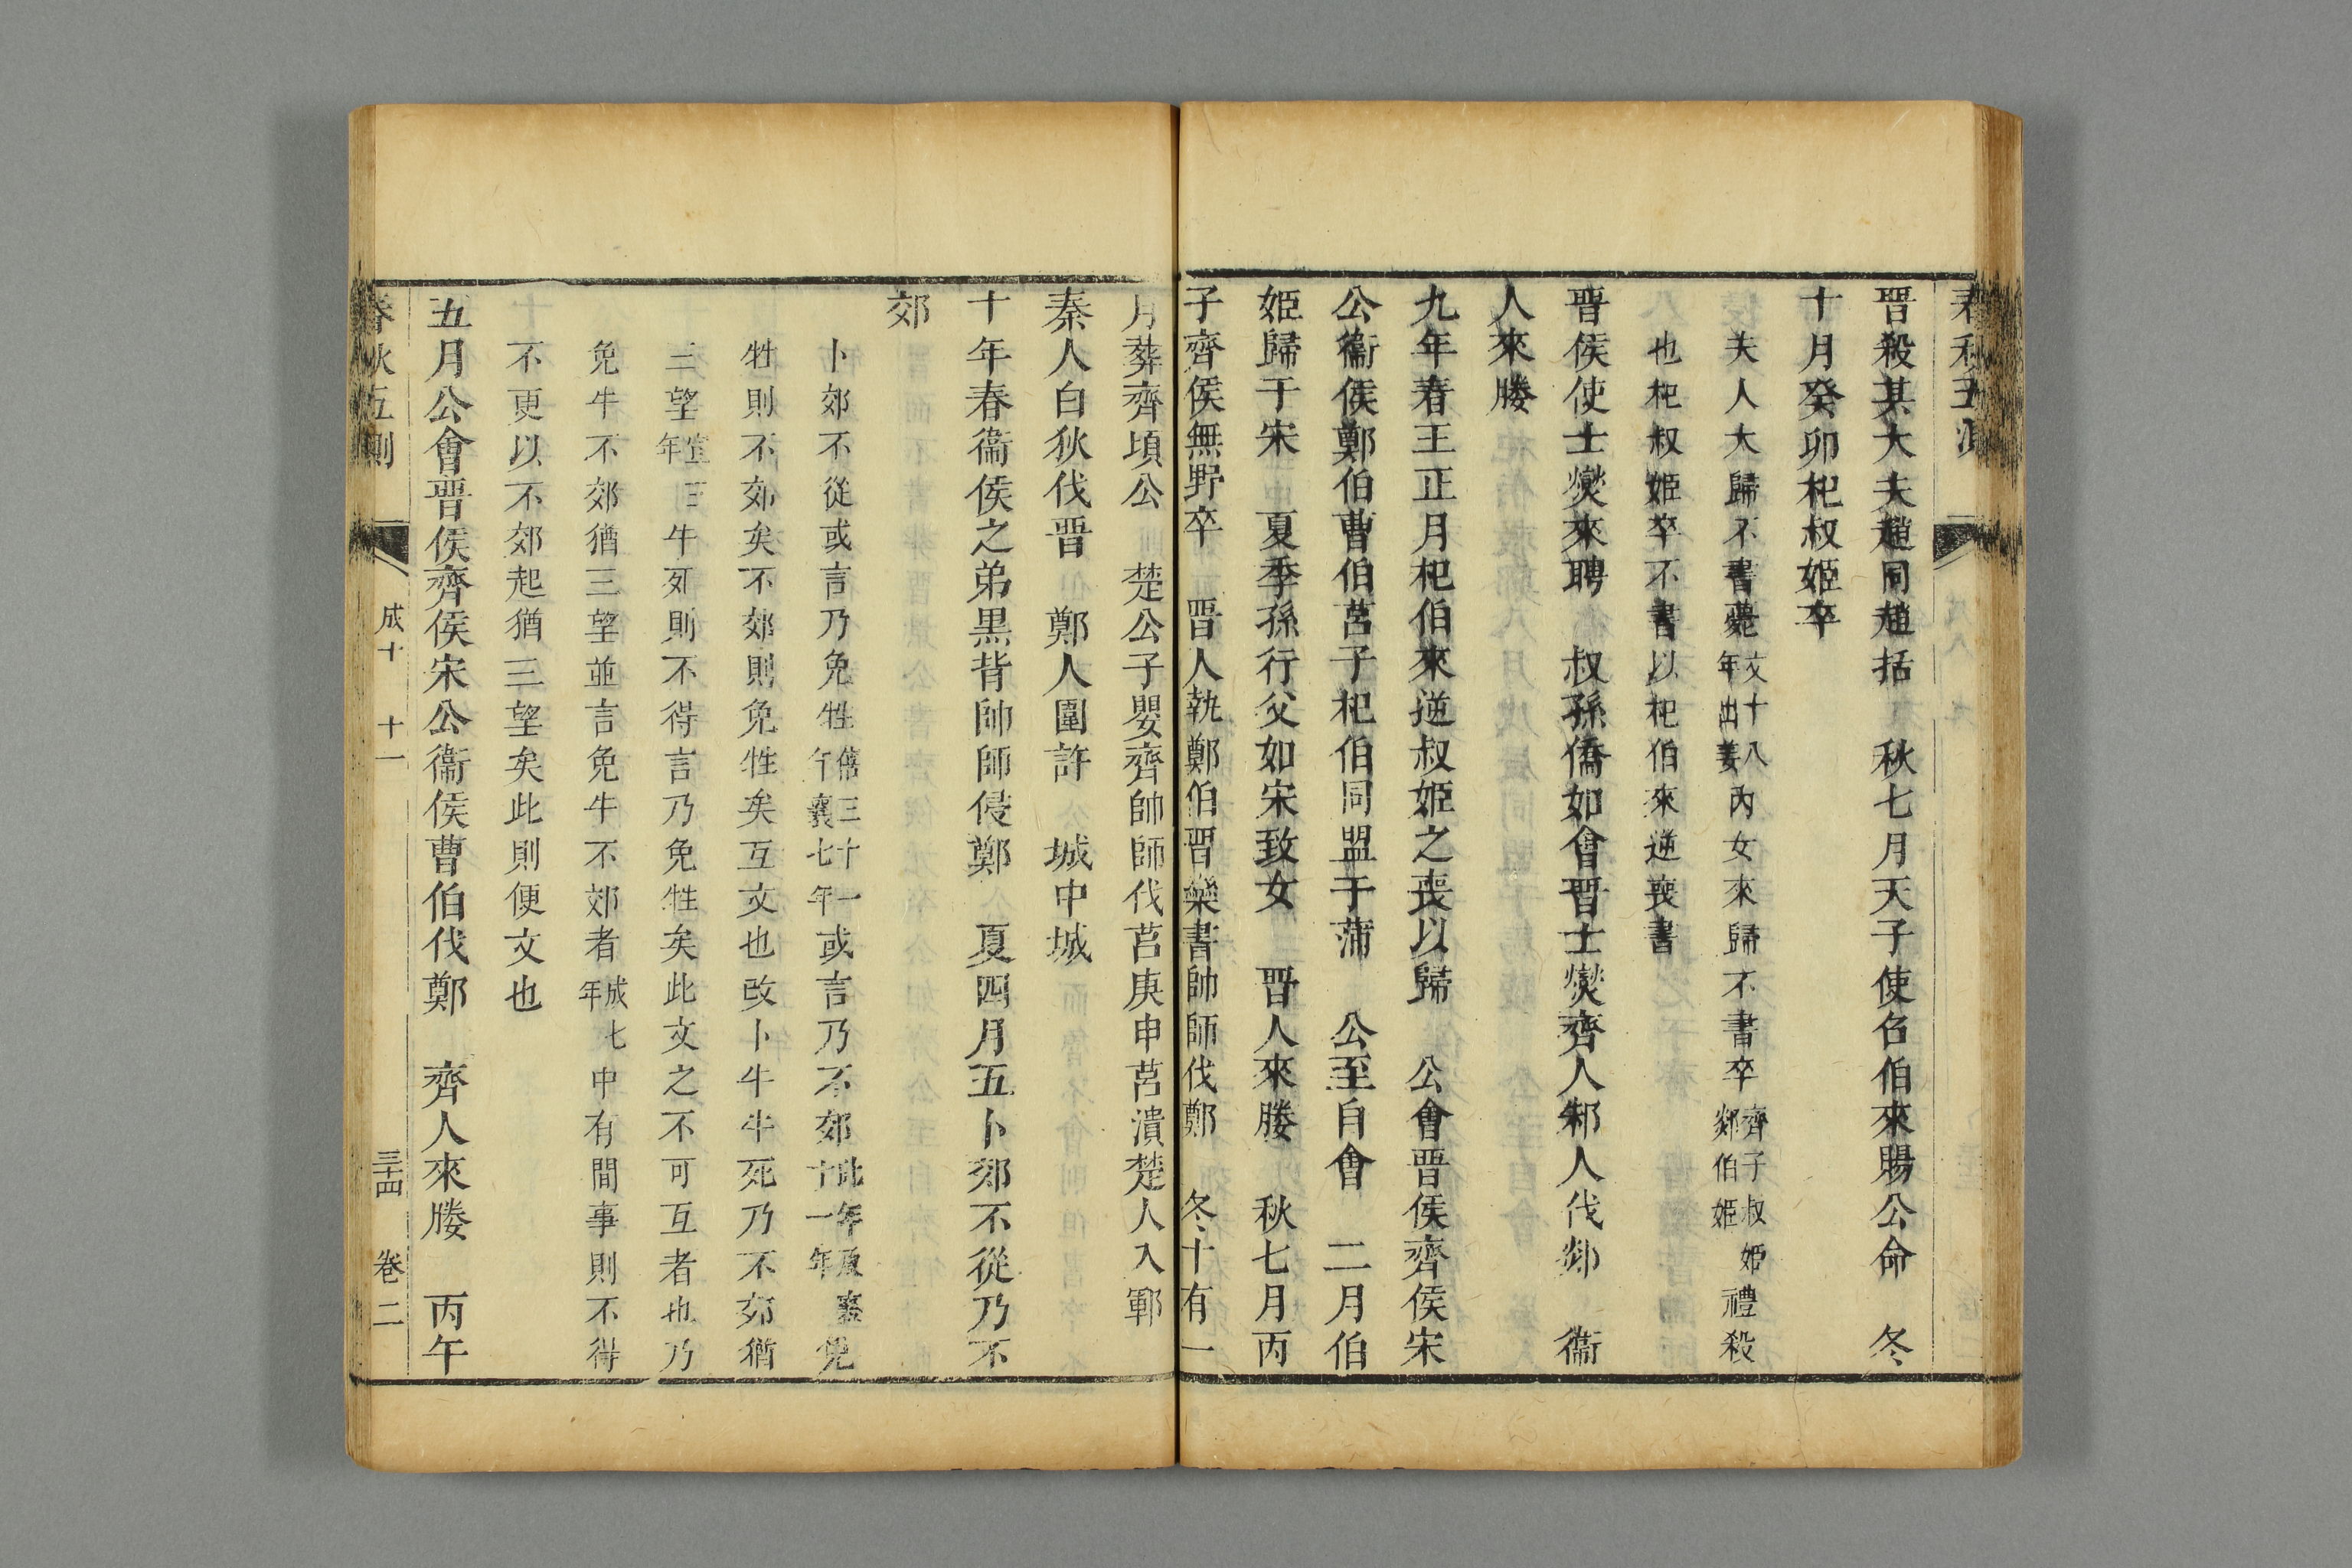 晋殺其大夫趙同趙括　秋七月天子使召伯來賜公命　冬
十月癸卯杞叔姬卒
夫人大歸不書薨文十八年出姜內女來歸不書卒齊子叔姬郯伯姬禮殺
也杞叔姬卒不書以杞伯來逆喪書
晋侯使士燮來聘　叔孫僑如會晋士燮齊人邾人伐郯　衞
人來媵
九年春王正月杞伯來逆叔姬之喪以歸　公會晋侯齊侯宋
公衞侯鄭伯曹伯莒子杞伯同盟于蒲　公至自會　二月伯
姬歸于宋　夏季孫行父如宋致女　晋人來媵　秋七月丙
子齊侯無野卒　晋人執鄭伯晋欒書帥師伐鄭　冬十有一
月葬齊頃公　楚公子嬰齊帥師伐莒庚申莒潰楚人入鄆
秦人白狄伐晋　鄭人圍許　城中城
十年春衞侯之弟黒背帥師侵鄭　夏四月五卜郊不從乃不
郊
卜郊不從或言乃免牲僖三十一年襄七年或言乃不郊此年及襄十一年免
牲則不郊矣不郊則免牲矣互文也改卜牛牛死乃不郊猶
三望宣三年牛死則不得言乃免牲矣此文之不可互者也乃
免牛不郊猶三望並言免牛不郊者成七年中有間事則不得
不更以不郊起猶三望矣此則便文也
五月公會晋侯齊侯宋公衞侯曹伯伐鄭　齊人來媵　丙午
春秋五測　成十　十一　三十四　卷二